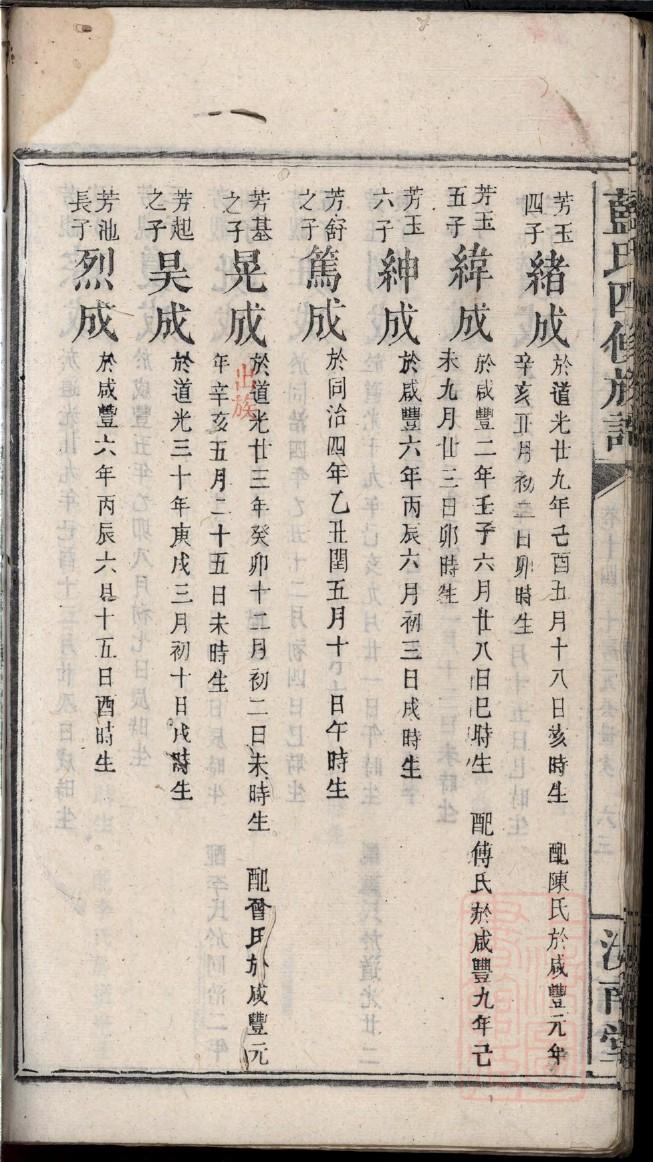 藍氏四修族譜
汝南堂
芳玉
四子
緒成
於道光廿九年己酉五月十八日亥時生 配陳氏於咸豐元年
辛亥丑月初二日卯時生
芳玉
五子
緯成
於咸豐二年壬子六月廿八日巳時生 配傅氏於咸豐九年己
未九月廿三日卯時生
芳玉
六子
紳成
於咸豐六年丙辰六月初三日戌時生
芳舒
之子
篤成
於同治四年乙丑閏五月十六日午時生
芳基
之子
晃成
出族
於道光廿三年癸卯十二月初二日未時生 配曾氏於咸豐元
年辛亥五月二十五日未時生
芳起
之子
昊成
於道光三十年庚戌三月初十日戌時生
芳池
長子
烈成
於咸豐六年丙辰六月十五日酉時生